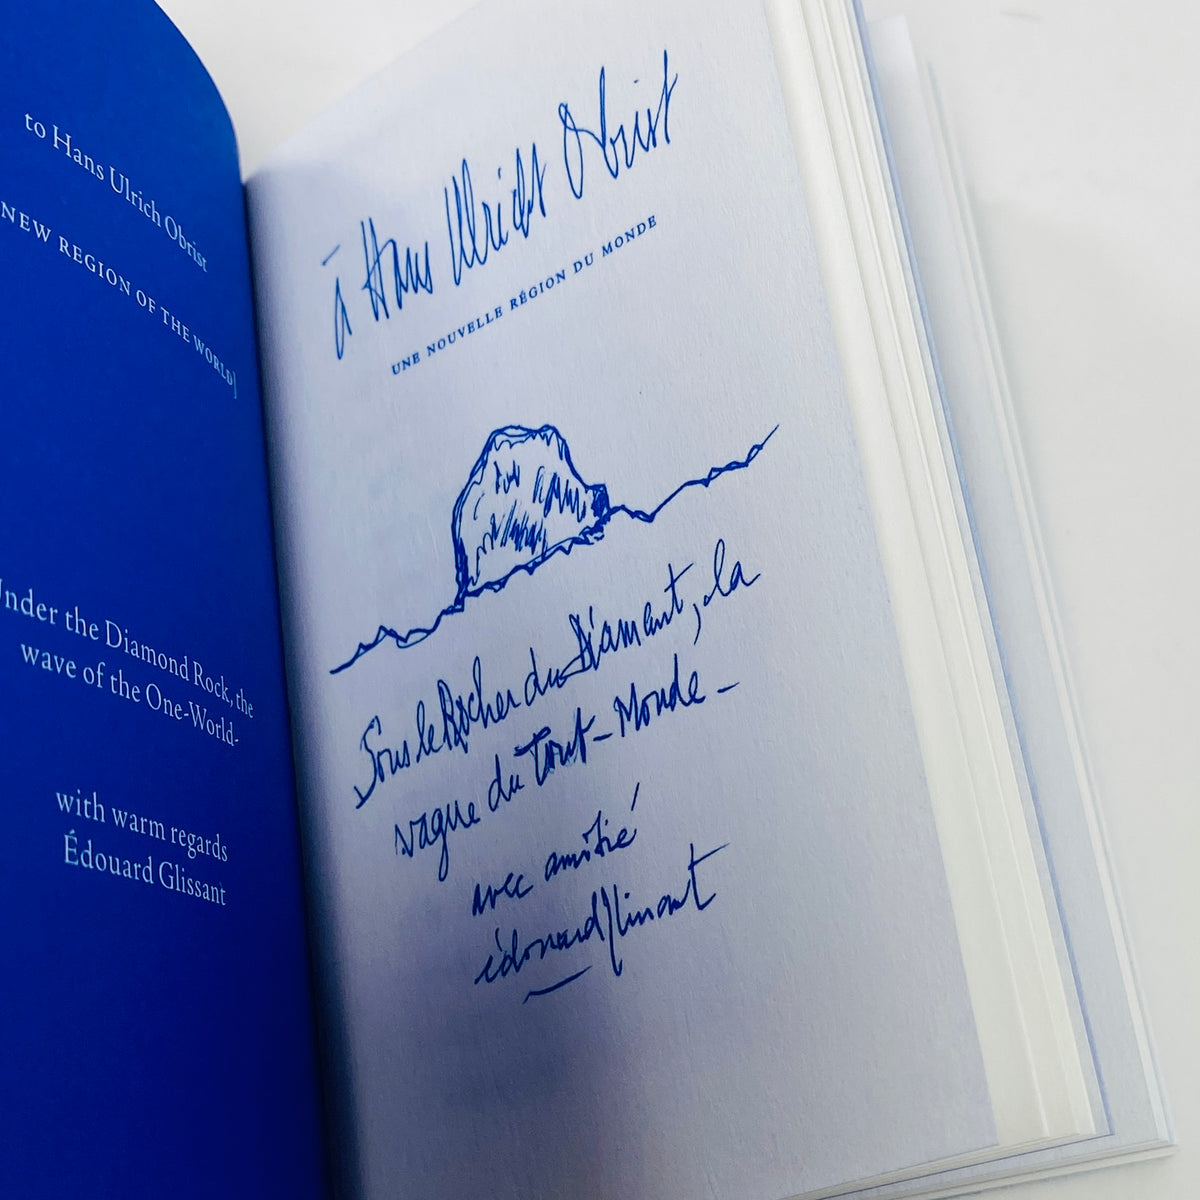 to Hans Ulrich Obrist
NEW REGION OF THE WORLD]
Under the Diamond Rock, the
wave of the One-World-
with warm regards
Édouard Glissant
à Hans Ulrich Obrist
UNE NOUVELLE RÉGION DU MONDE
Sous le Rocher du Diamant, la
vague du Tout-Monde -
avec amitié
édouard glissant